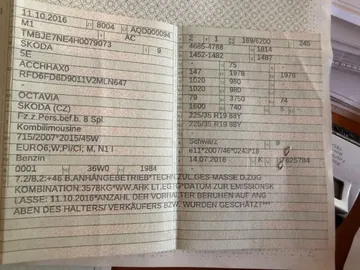 11.10.2016 8004 AQD000094
M1 AC
TMBJE7NE4H0079073
SKODA 9
SE
ACCHHAX0
RFD6FD8D9011V2MLN647
-
OCTAVIA
SKODA (CZ)
Fz.z.Pers.bef.b. 8 Spl.
Kombilimousine
715/2007*2015/45W
EURO6;W;PI/CI; M, N1 I
Benzin
0001 36W0 1984
2 1 169/6700 245
4685-4788 1814
1452-1482 1487
75
147 1978 1978
1020 980
1020 980
79 3750 74
1600 740 5
225/35 R19 88Y
225/35 R19 88Y
Schwarz
14.07.2016 K
7.2/8.2:+46 B.ANHÄNGEBETRIEB*TECH.ZUL.GES-MASSE D.ZUG
KOMBINATION:3578KG*WW.AHK LT.EGTG*DATUM ZUR EMISSIONSK
LASSE: 11.10.2016*ANZAHL DER VORHALTER BERUHEN AUF ANG
ABEN DES HALTERS/ VERKÄUFERS BZW. WURDEN GESCHÄTZT***